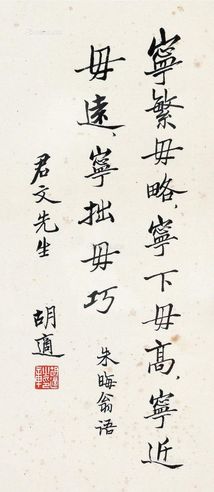 寧繁毋略，寧下毋高，寧近
毋遠，寧拙毋巧
朱晦翁语
君文先生
胡適